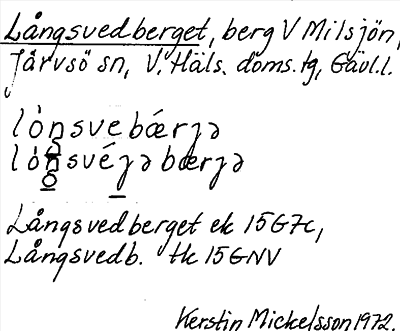 Långsvedberget, berg V Milsjön,
Järvsö sn, V. Häls. doms.tg, Gävl.l.
lȯnsve bǽrɟə
lȯnsvéɟə bærɟə
Långsvedberget ek 15G7c,
Långsvedb. tk 15GNV
Kerstin Mickelsson 1972.